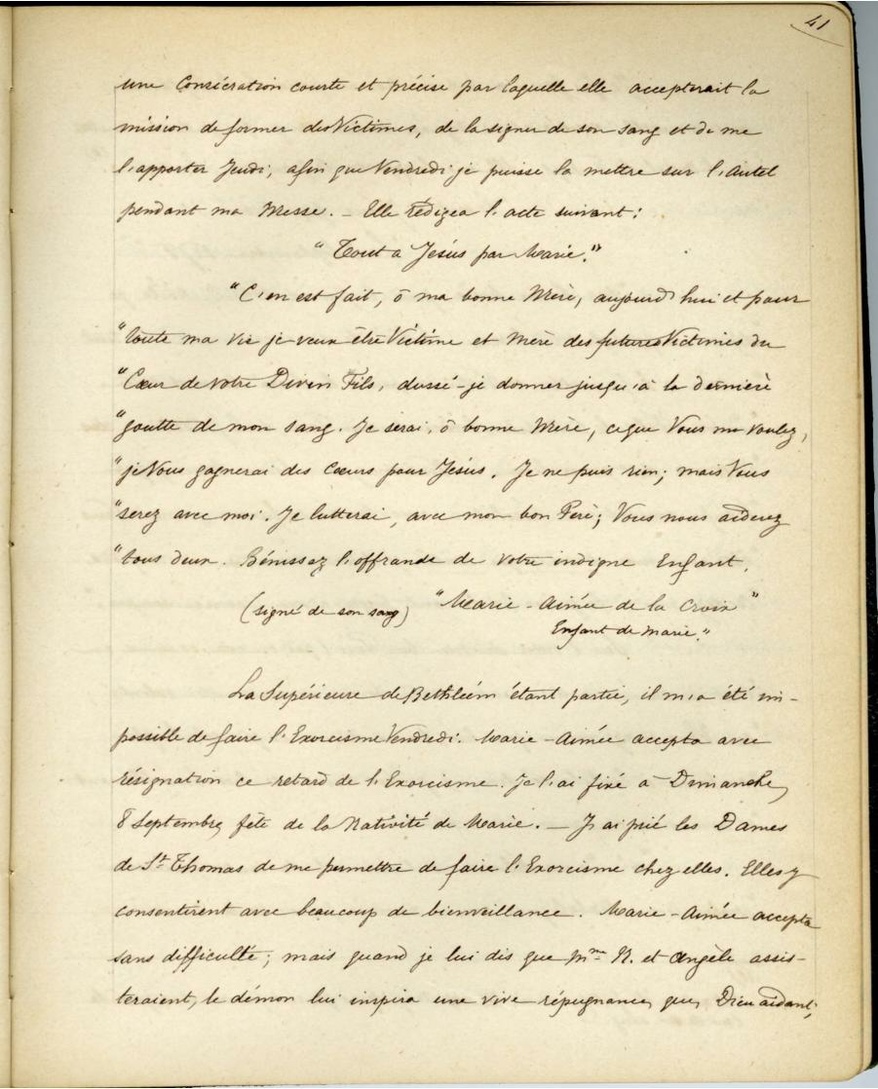 41
une Consécration courte et précise par laquelle elle accepterait la
mission de former des Victimes, de la signer de son sang et de me
l'apporter Jeudi, afin que Vendredi je puisse la mettre sur l'Autel
pendant ma Messe. _ Elle rédigea l'acte suivant:
"Tout a Jésus par Marie."
"C'en est fait, ô ma bonne Mère, aujourd'hui et pour
"toute ma vie je veux être Victime et Mère des futures Victimes du
"Cœur de votre Divin Fils, dussé-je donner jusqu'à la dernière
"goutte de mon sang. Je serai, ô bonne Mère, ce que Vous me voulez,
"je Vous gagnerai des Cœurs pour Jésus. Je ne puis rien; mais Vous
"serez avec moi. Je lutterai, avec mon bon Père; Vous nous aiderez
"tous deux. Bénissez l'offrande de votre indigne Enfant.
(signé de son sang) "Marie-Aimée de la Croix"
Enfant de Marie."
La Supérieure de Bethléem étant partie, il m'a été im-
possible de faire l'Exorcisme Vendredi. Marie-Aimée accepta avec
résignation ce retard de l'Exorcisme. Je l'ai fixé à Dimanche,
8 Septembre, fête de la Nativité de Marie. _ J'ai prié les Dames
de St Thomas de me permettre de faire l'Exorcisme chez elles. Elles y
consentirent avec beaucoup de bienveillance. Marie-Aimée accepta
sans difficulté; mais quand je lui dis que Mme R. et Angèle assis-
teraient, le démon lui inspira une vive répugnance, que, Dieu aidant,